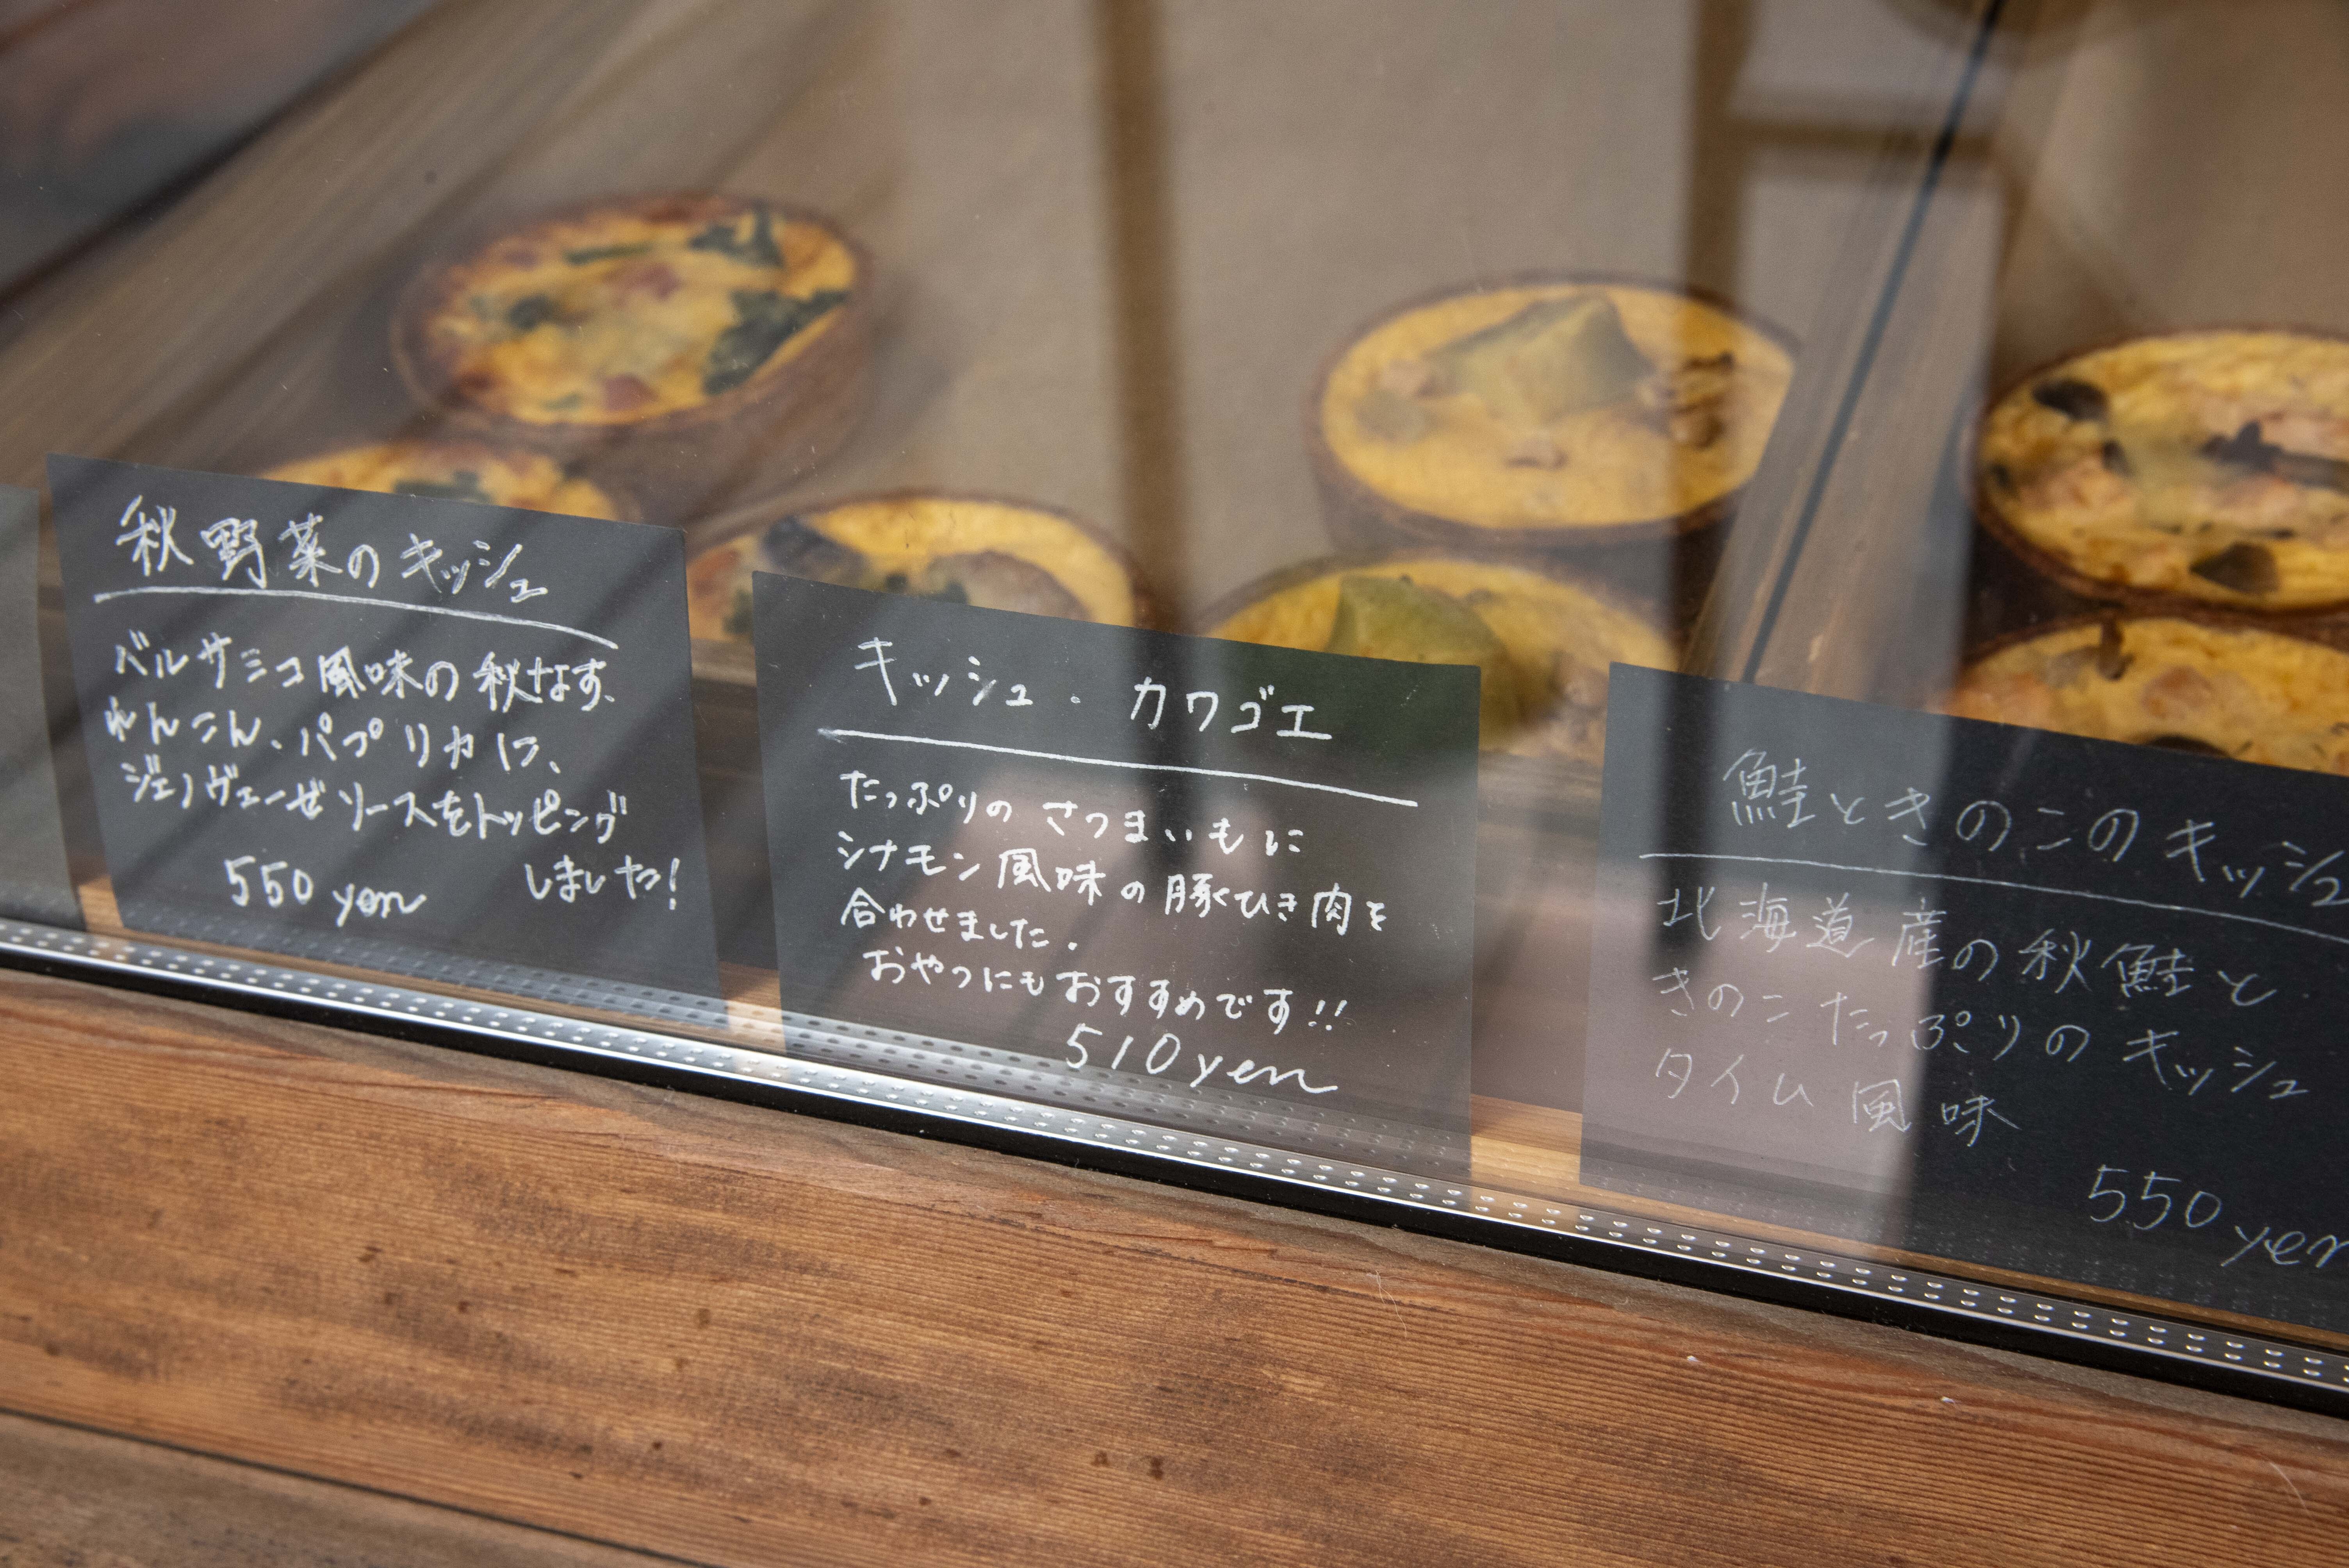 秋野菜のキッシュ
バルサミコ風味の秋なす、
れんこん、パプリカに、
ジェノヴェーゼソースをトッピング
しました!
550 yen
キッシュ・カワゴエ
たっぷりの さつまいもに
シナモン風味の豚ひき肉を
合わせました。
おやつにもおすすめです!!
510yen
鮭ときのこのキッシュ
北海道産の秋鮭と
きのこたっぷりのキッシュ
タイム風味
550yen